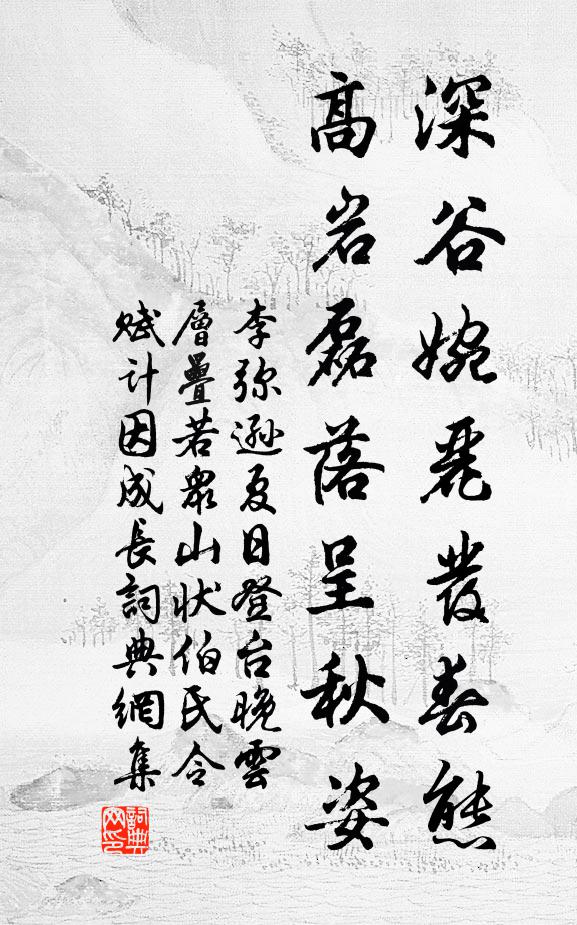 深谷婉麗發春態
高岩磊落呈秋姿
李弥遜夏日登台晚雲
層疊若眾山狀伯氏令
賦計因成長詞典網集
詞典网印